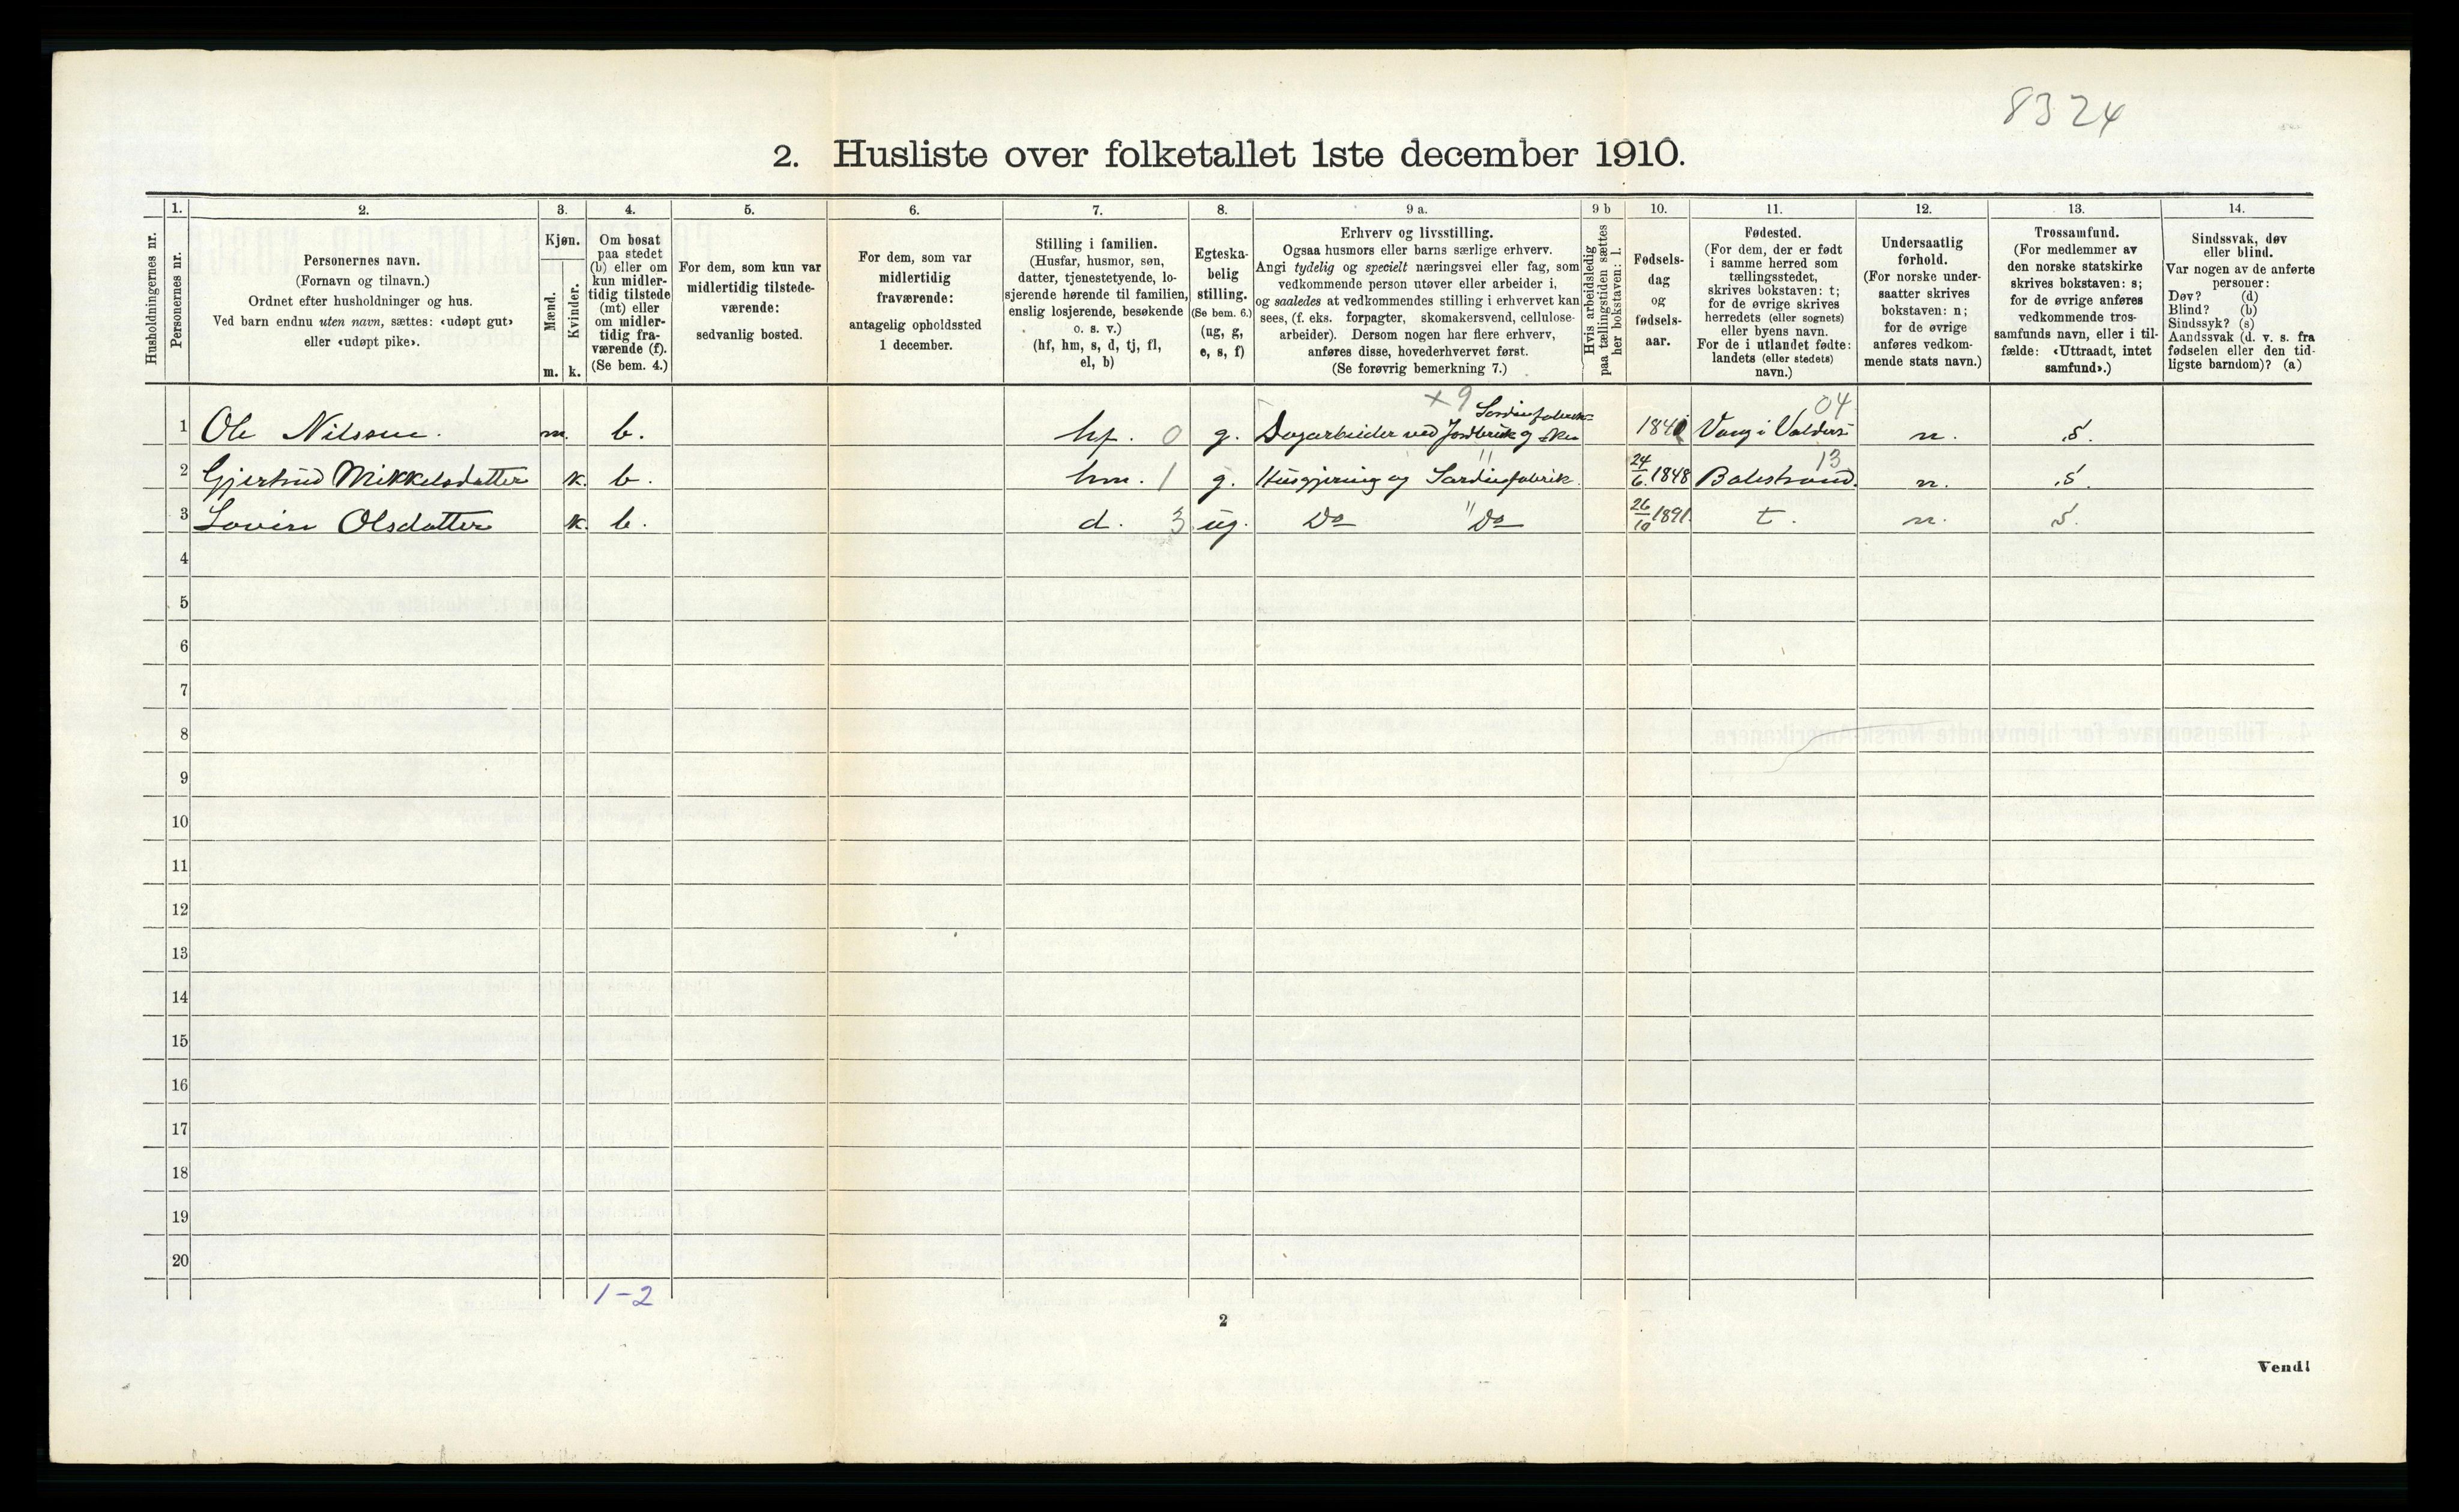 8324
2. Husliste over folketallet 1ste december 1910.
Husholdningernes nr.
1.
Personernes nr.
2.
Personernes navn.
(Fornavn og tilnavn.)
Ordnet efter husholdninger og hus.
Ved barn endnu uten navn, sættes: «udøpt gut»
eller «udøpt pike».
3.
Kjøn.
Mænd.
Kvinder.
m. k.
4.
Om bosat
paa stedet
(b) eller om
kun midler-
tidig tilstede
(mt) eller
om midler-
tidig fra-
værende (f).
(Se bem. 4.)
5.
For dem, som kun var
midlertidig tilstede-
værende:
sedvanlig bosted.
6.
For dem, som var
midlertidig
fraværende:
antagelig opholdssted
1 december.
7.
Stilling i familien.
(Husfar, husmor, søn,
datter, tjenestetyende, lo-
sjerende hørende til familien,
enslig losjerende, besøkende
o. s. v.)
(hf, hm, s, d, tj, fl,
el, b)
8.
Egteska-
belig
stilling.
(Se bem. 6.)
(ug, g,
e, s, f)
9 a.
Erhverv og livsstilling.
Ogsaa husmors eller barns særlige erhverv.
Angi tydelig og specielt næringsvei eller fag, som
vedkommende person utøver eller arbeider i,
og saaledes at vedkommendes stilling i erhvervet kan
sees, (f. eks. forpagter, skomakersvend, cellulose-
arbeider). Dersom nogen har flere erhverv,
anføres disse, hovederhvervet først.
(Se forøvrig bemerkning 7.)
9 b
Hvis arbeidsledig
paa tællingstiden sættes
her bokstaven: l.
10.
Fødsels-
dag
og
fødsels-
aar.
11.
Fødested.
(For dem, der er født
i samme herred som
tællingsstedet,
skrives bokstaven: t;
for de øvrige skrives
herredets (eller sognets)
eller byens navn.
For de i utlandet fødte:
landets (eller stedets)
navn.)
12.
Undersaatlig
forhold.
(For norske under-
saatter skrives
bokstaven: n;
for de øvrige
anføres vedkom-
mende stats navn.)
13.
Trossamfund.
(For medlemmer av
den norske statskirke
skrives bokstaven: s;
for de øvrige anføres
vedkommende tros-
samfunds navn, eller i til-
fælde: «Uttraadt, intet
samfund».)
14.
Sindssvak, døv
eller blind.
Var nogen av de anførte
personer:
Døv? (d)
Blind? (b)
Sindssyk? (s)
Aandssvak (d. v. s. fra
fødselen eller den tid-
ligste barndom)? (a)
×9 Sardinfabrik= 04
1 Ole Nilssen. m. b. hf. 0 g. Dagarbeider ved Jordbruk og 184 Vang i Valders n. s.
13
2 Gjertrud Mikkelsdatter k. b. hm. 1 g. Husgjerning og Sardinfabrik. 24/6 1848 Balestrand. n. s.
3 Lovise Olsdatter k. b. d. 3 ug. Do " Do 26/10 1891. t. n. s.
4
5
6
7
8
9
10
11
12
13
14
15
16
17
18
19
20
1-2
2
Vend!